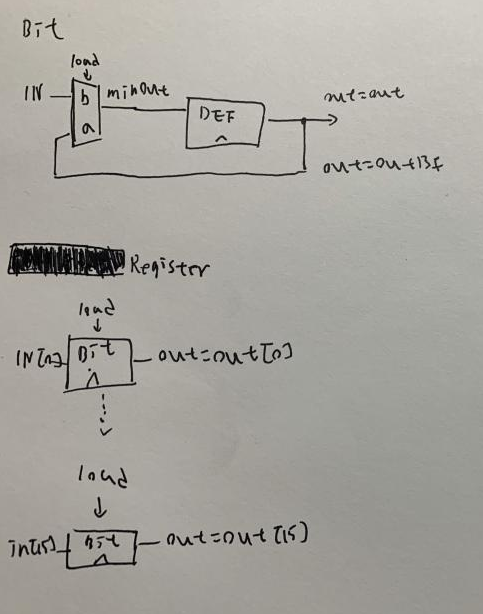 Bit
load
IN b minout DFF out=out
a
out=outBf
Register
load
IN[0] Bit out=out[0]
load
in[15] Bit out=out[15]